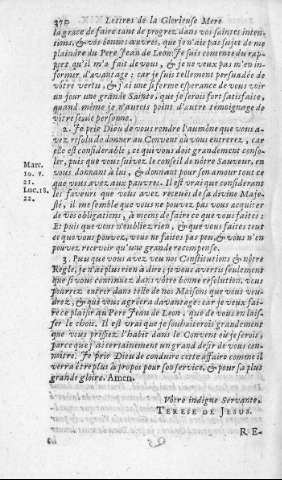 370 Lettres de la Glorieuse Mere
la grace de faire tant de progrez dans vos saintes inten-
tions, & vos bonnes œuvres, que je n'aie pas sujet de me
plaindre du Pere Jean de Leon: Je suis contente du rap-
port qu'il m'a fait de vous, & je ne veux pas m'en in-
former d'avantage: car je suis tellement persuadée de
vôtre vertu, & j'ai une si forte esperance de vous voir
un jour une grande Sainte, que je serois fort satisfaite,
quand même je n'aurois point d'autre témoignage de
vôtre seule personne.
2. Je prie Dieu de vous rendre l'aumône que vous a-
vez resolu de donner au Convent où vous entrerez, car
elle est considerable, ce qui vous doit grandement conso-
ler, puis que vous suivez le conseil de nôtre Sauveur, en
vous donnant à lui, & donnant pour son amour tout ce
que vous avez aux pauvres. Il est vrai que considerant
les faveurs que vous avez receuës de sa divine Maje-
sté, il me semble que vous ne pouvez pas vous acquiter
de vos obligations, à moins de faire ce que vous faites:
Et puis que vous n'oubliez rien, & que vous faites tout
ce que vous pouvez, vous ne faites pas peu, & vous n'en
pouvez recevoir qu'une grande recompense.
Matt.
10. v.
21.
Luc. 18.
22.
3. Puis que vous avez veu nos Constitutions & nôtre
Regle, je n'ai plus rien à dire; je vous avertis seulement
que si vous continuez dans vôtre bonne resolution, vous
pourrez entrer dans telle de nos Maisons que vous vou-
drez, & qui vous agréera davantage: car je veux fai-
re ce plaisir au Pere Jean de Leon, que de vous en lais-
ser le choix. Il est vrai que je souhaiterois grandement
que vous prissiez l'habit dans le Convent où je serois,
parce que j'ai certainement un grand desir de vous con-
noître. Je prie Dieu de conduire cette affaire comme il
verra être plus à propos pour son service, & pour sa plus
grande gloire. Amen.
Vôtre indigne Servante,
TERESE DE JESUS.
R E-